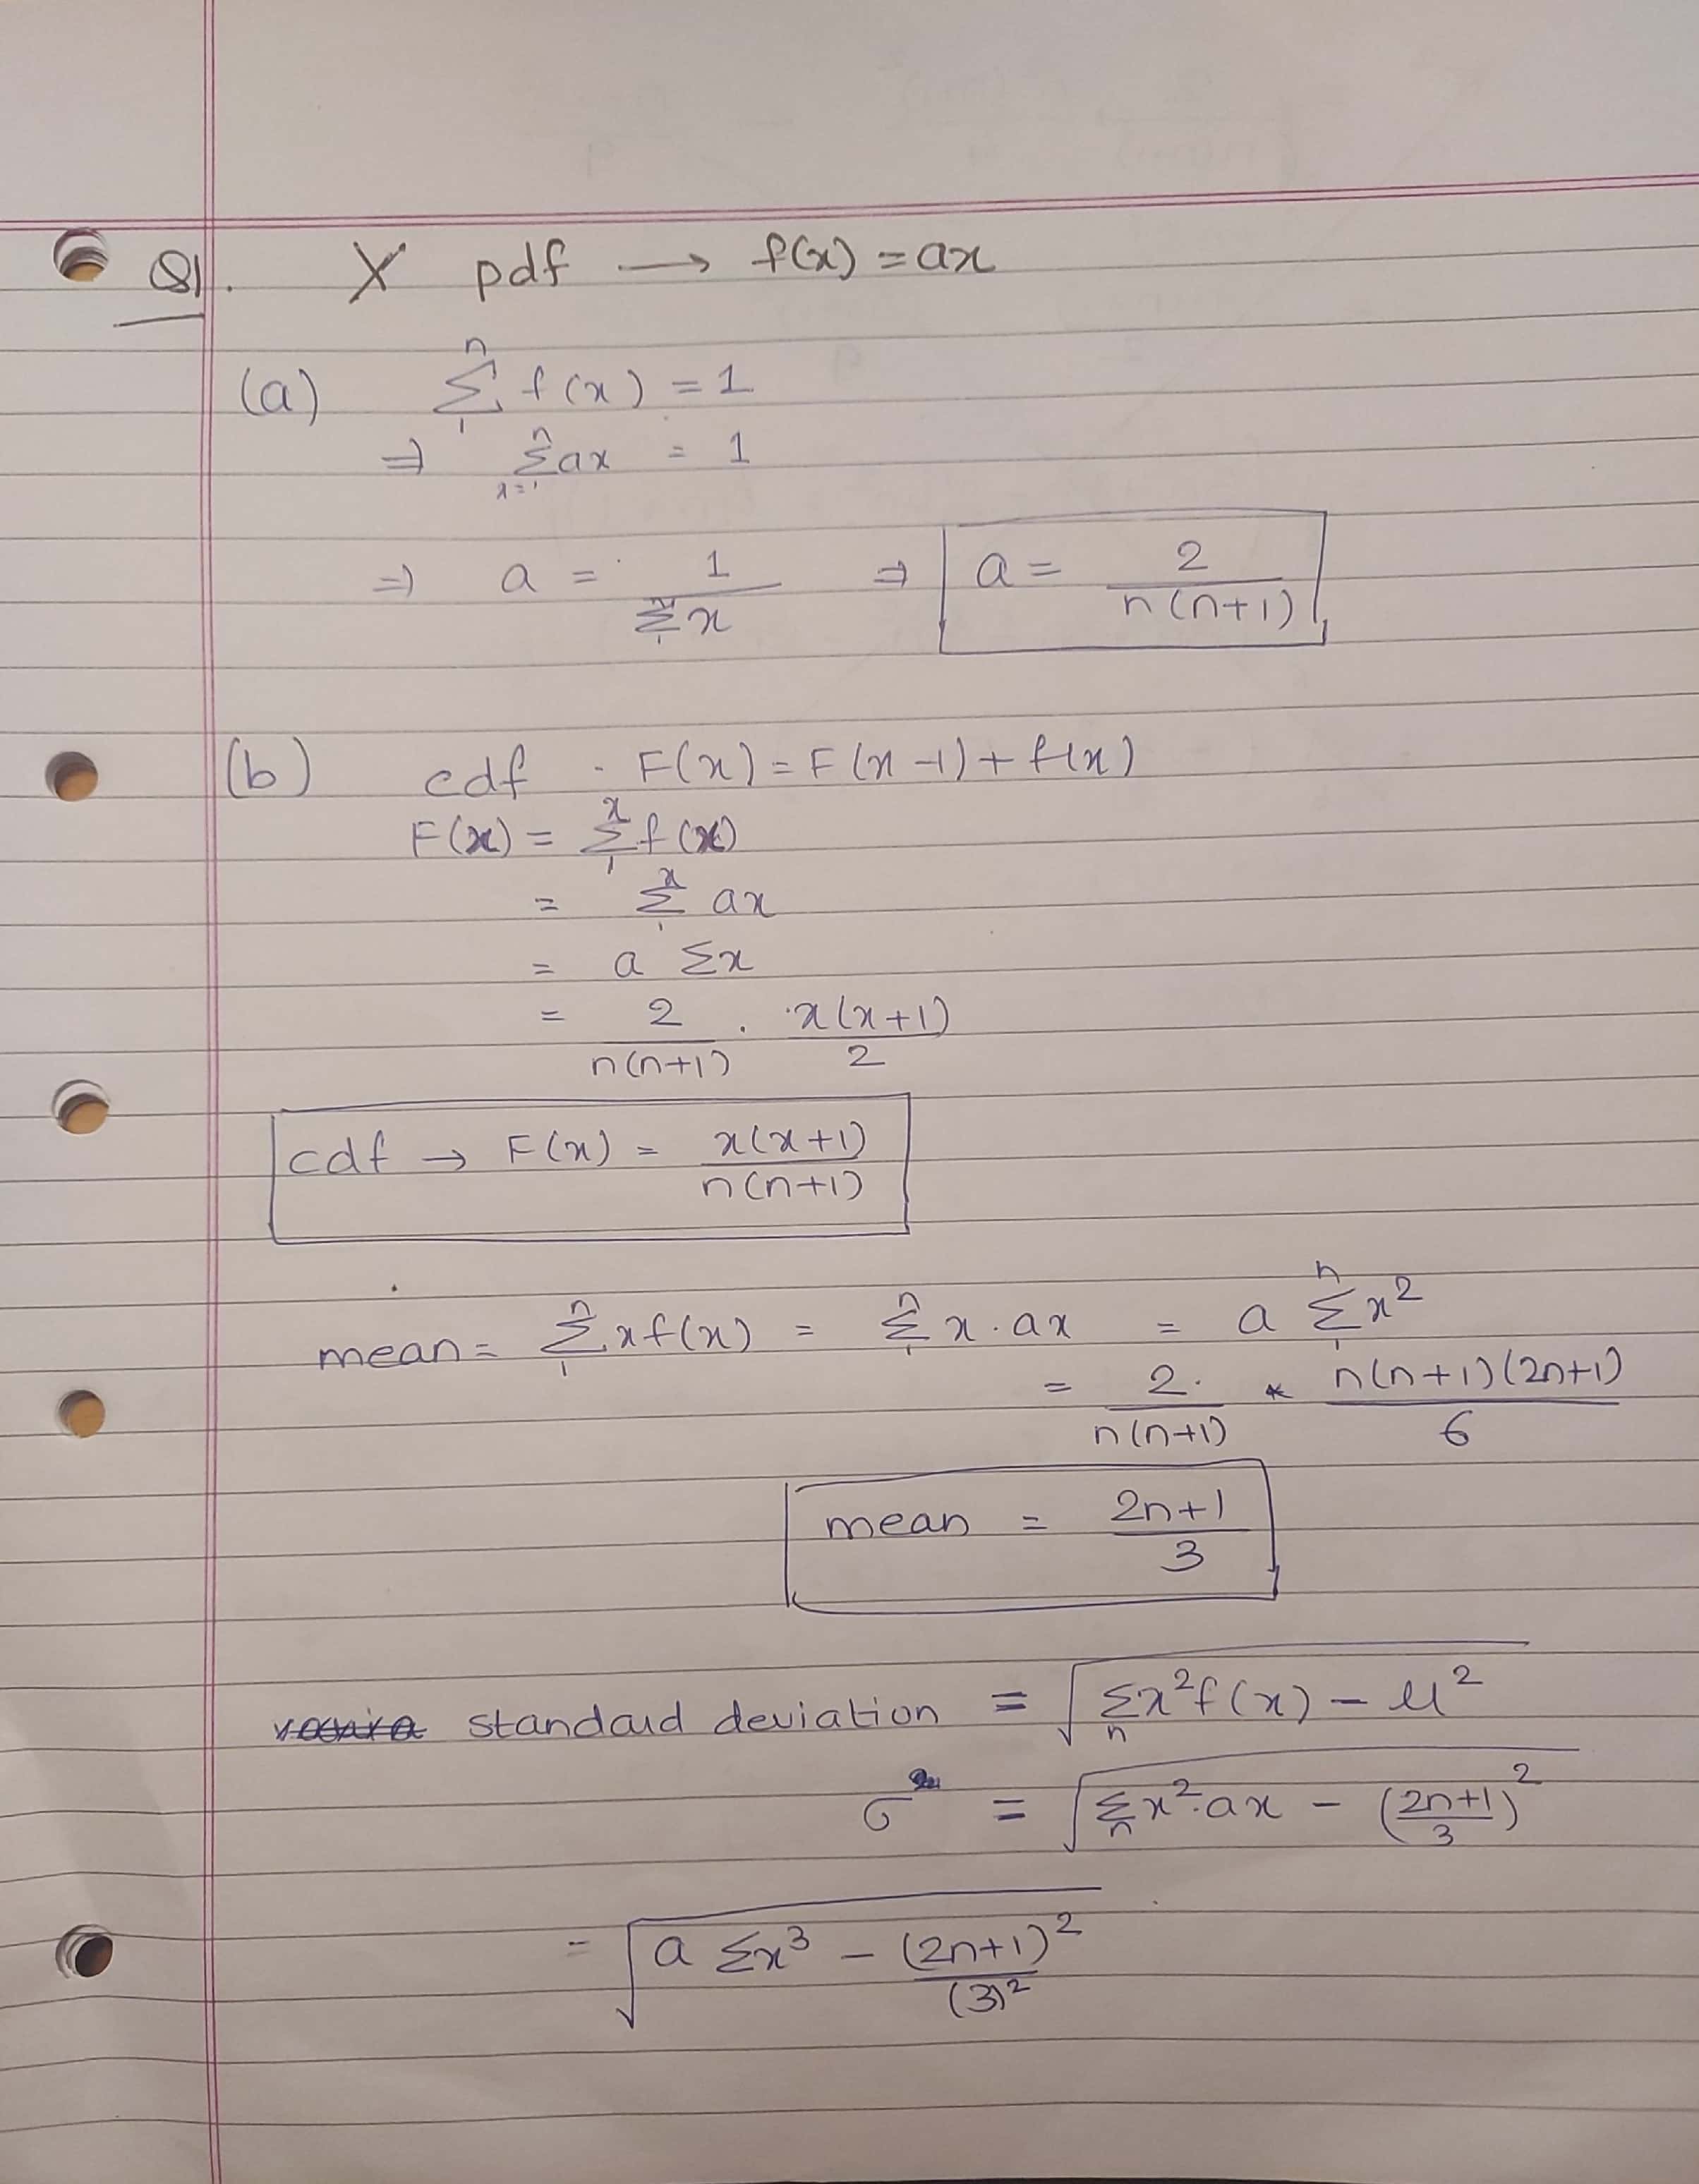 Q1. X pdf → f(x) = ax
(a) n∑1 f(x) = 1
⇒ n∑x=1 ax = 1
⇒ a = 1 / n∑1 x ⇒ a = 2 / n(n+1)
(b) cdf . F(x) = F(x-1) + f(x)
F(x) = x∑1 f(x)
= x∑1 ax
= a ∑x
= 2 / n(n+1) . x(x+1) / 2
cdf → F(x) = x(x+1) / n(n+1)
mean = n∑1 xf(x) = n∑1 x.ax = a n∑1 x²
= 2. / n(n+1) * n(n+1)(2n+1) / 6
mean = 2n+1 / 3
standard deviation = √(∑n x²f(x) - μ²)
σ = √(∑n x².ax - (2n+1 / 3)²)
= √(a ∑x³ - (2n+1)² / (3)²)